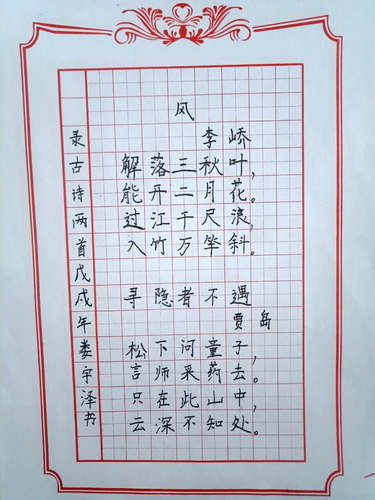 风
李峤
解落三秋叶,
能开二月花。
过江千尺浪,
入竹万竿斜。
寻隐者不遇
贾岛
松下问童子,
言师采药去。
只在此山中,
云深不知处。
录古诗两首戊戌年娄宇泽书